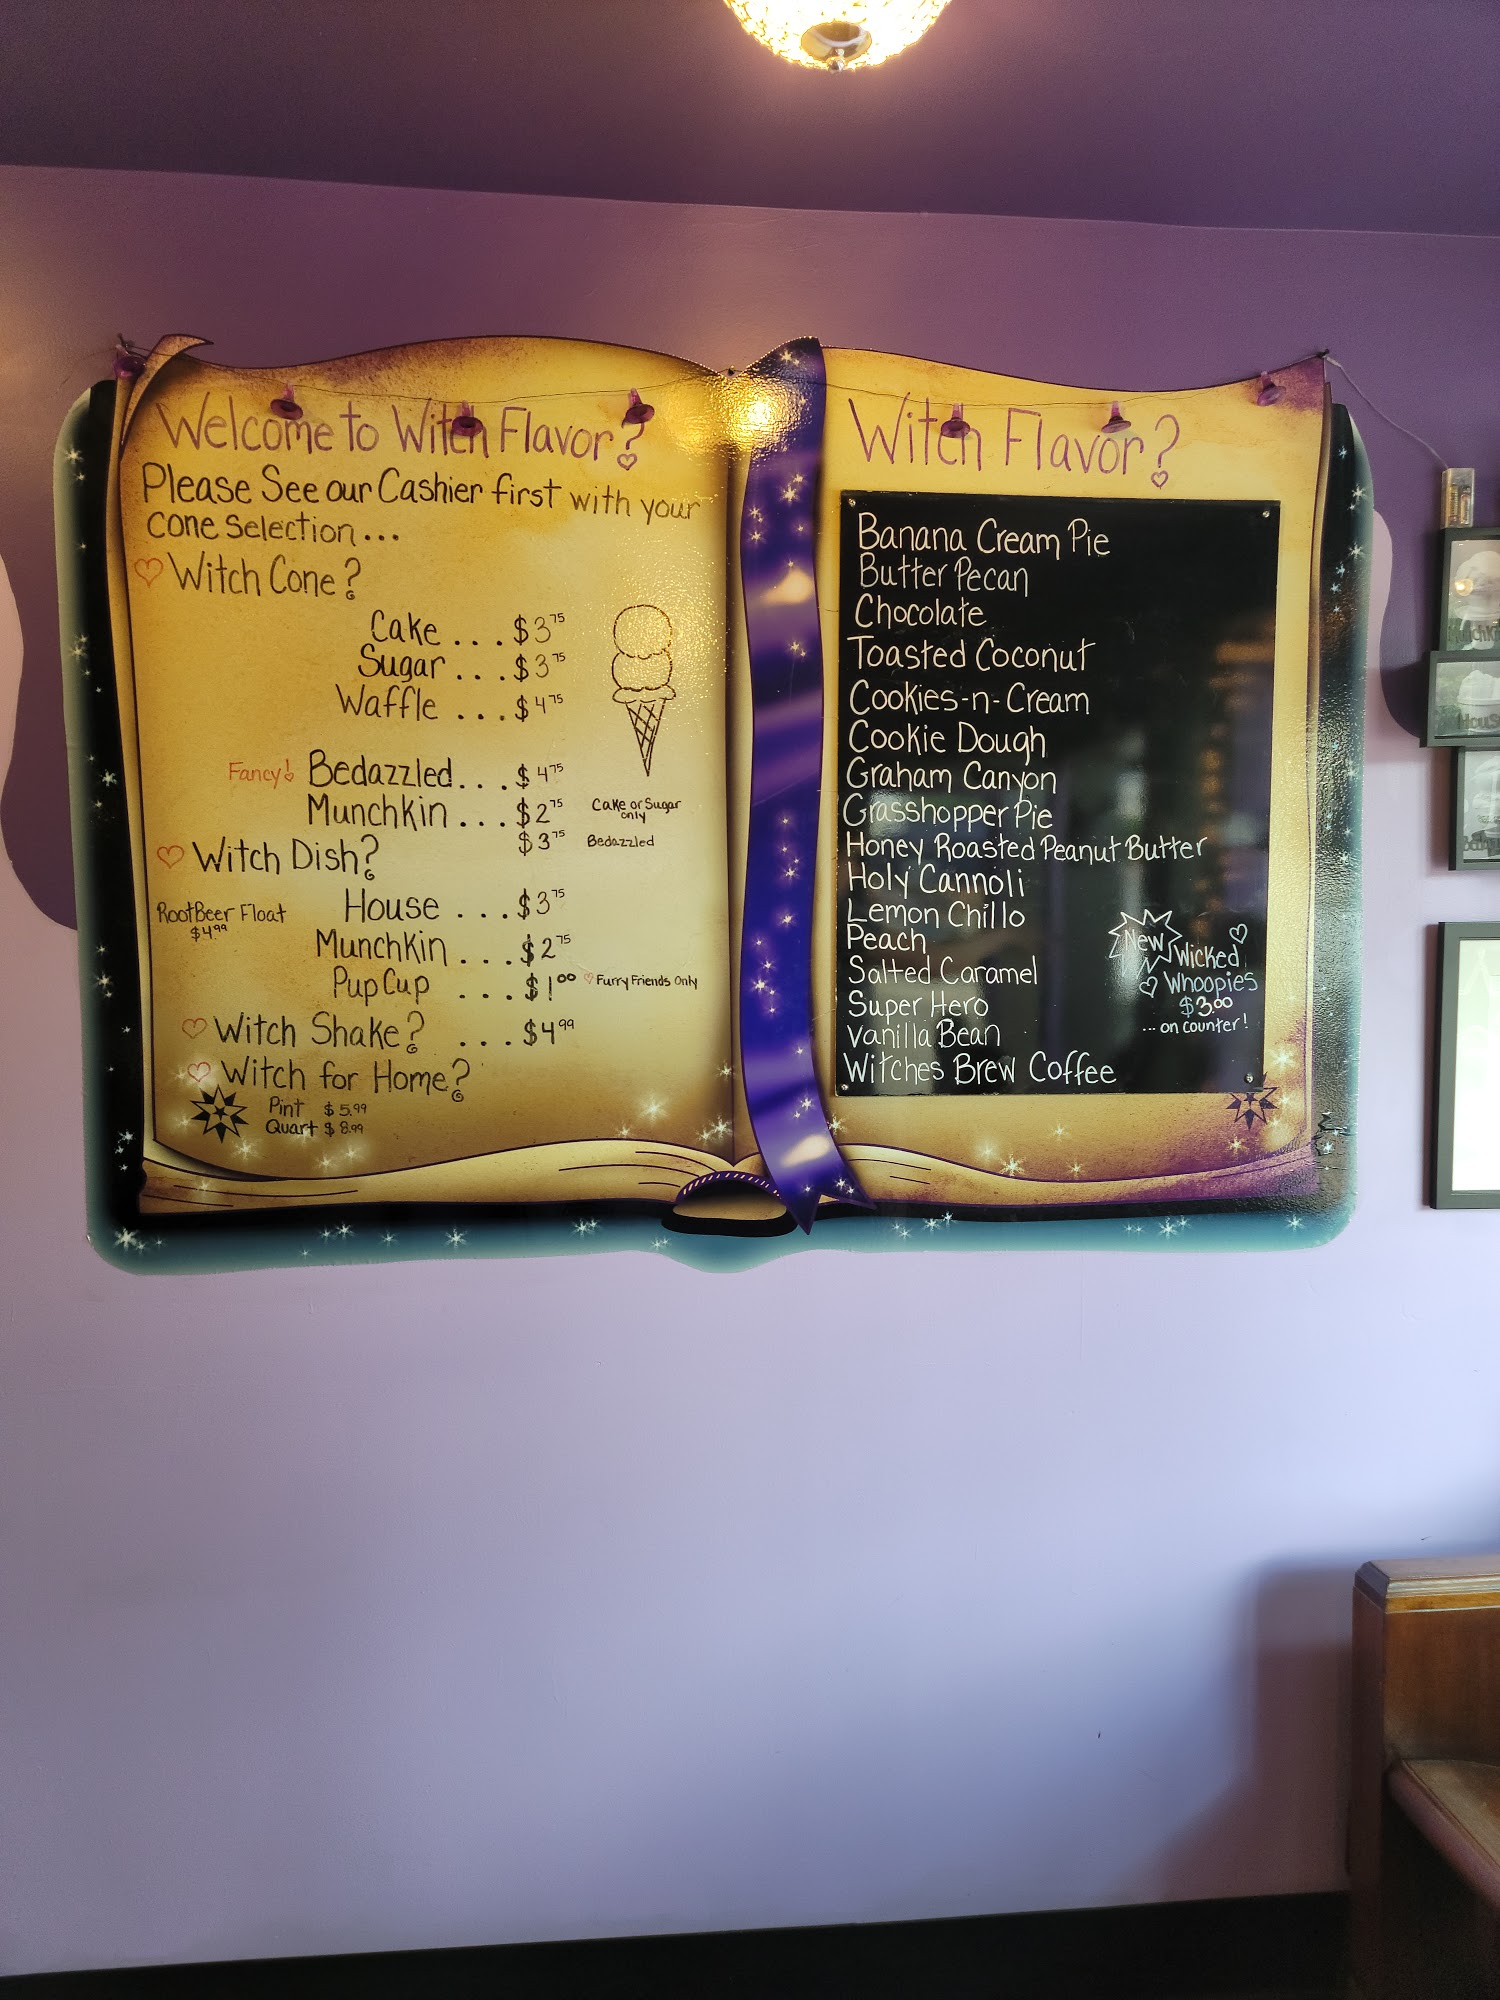 Welcome to Witch Flavor?
Please See our Cashier first with your
cone selection...
Witch Cone?
Cake ... $3.75
Sugar ... $3.75
Waffle ... $4.75
Fancy! Bedazzled... $4.75
Munchkin ... $2.75 Cake or Sugar
only
$3.75 Bedazzled
Witch Dish?
House ... $3.75
RootBeer Float
$4.99
Munchkin ... $2.75
Pup Cup ... $1.00 Furry Friends Only
Witch Shake? ... $4.99
Witch for Home?
Pint $5.99
Quart $8.99
Witch Flavor?
Banana Cream Pie
Butter Pecan
Chocolate
Toasted Coconut
Cookies-n-Cream
Cookie Dough
Graham Canyon
Grasshopper Pie
Honey Roasted Peanut Butter
Holy Cannoli
Lemon Chillo
Peach
Salted Caramel
Super Hero
Vanilla Bean
Witches Brew Coffee
New Wicked
Whoopies
$3.00
... on counter!